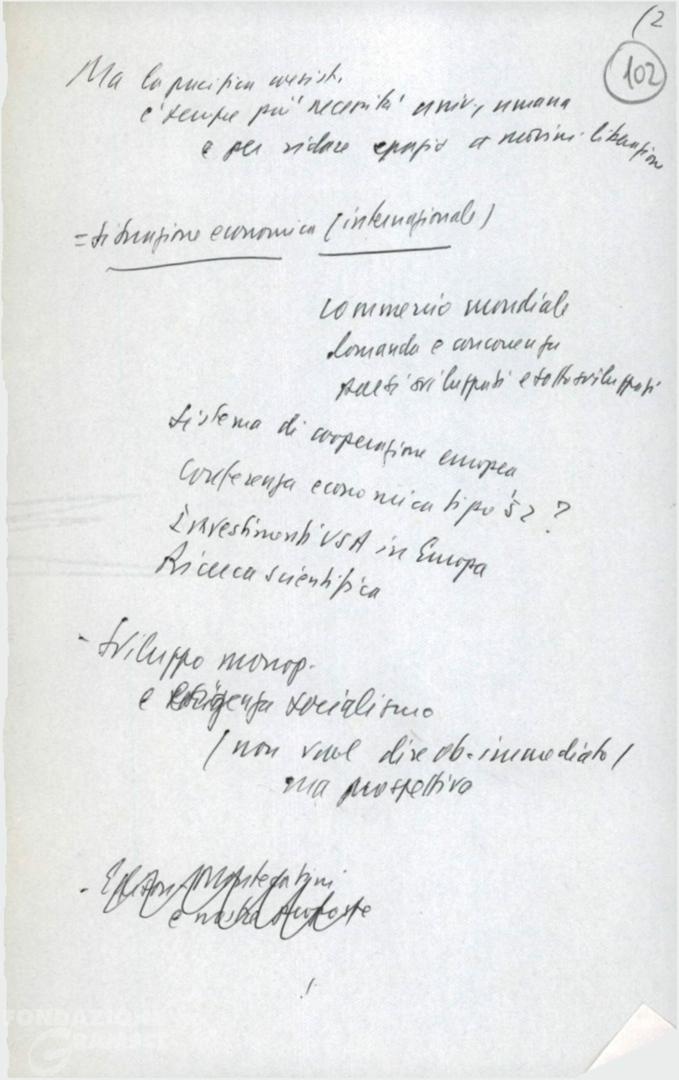 (2
102
Ma la pacifica coesist.
è sempre più necessità univ., umana
e per ridare spazio a movim. liberazione
= Situazione economica (internazionale)
Commercio mondiale
domanda e concorrenza
paesi sviluppati e sottosviluppati
Sistema di cooperazione europea
Conferenza economica tipo '52 ?
Investimenti USA in Europa
Ricerca scientifica
- Sviluppo monop.
e esigenza socialismo
(non vuol dire ob. immediato)
ma prospettiva
- Edison Montecatini
e nostra proposte
FONDAZIONE
GRAMSCI